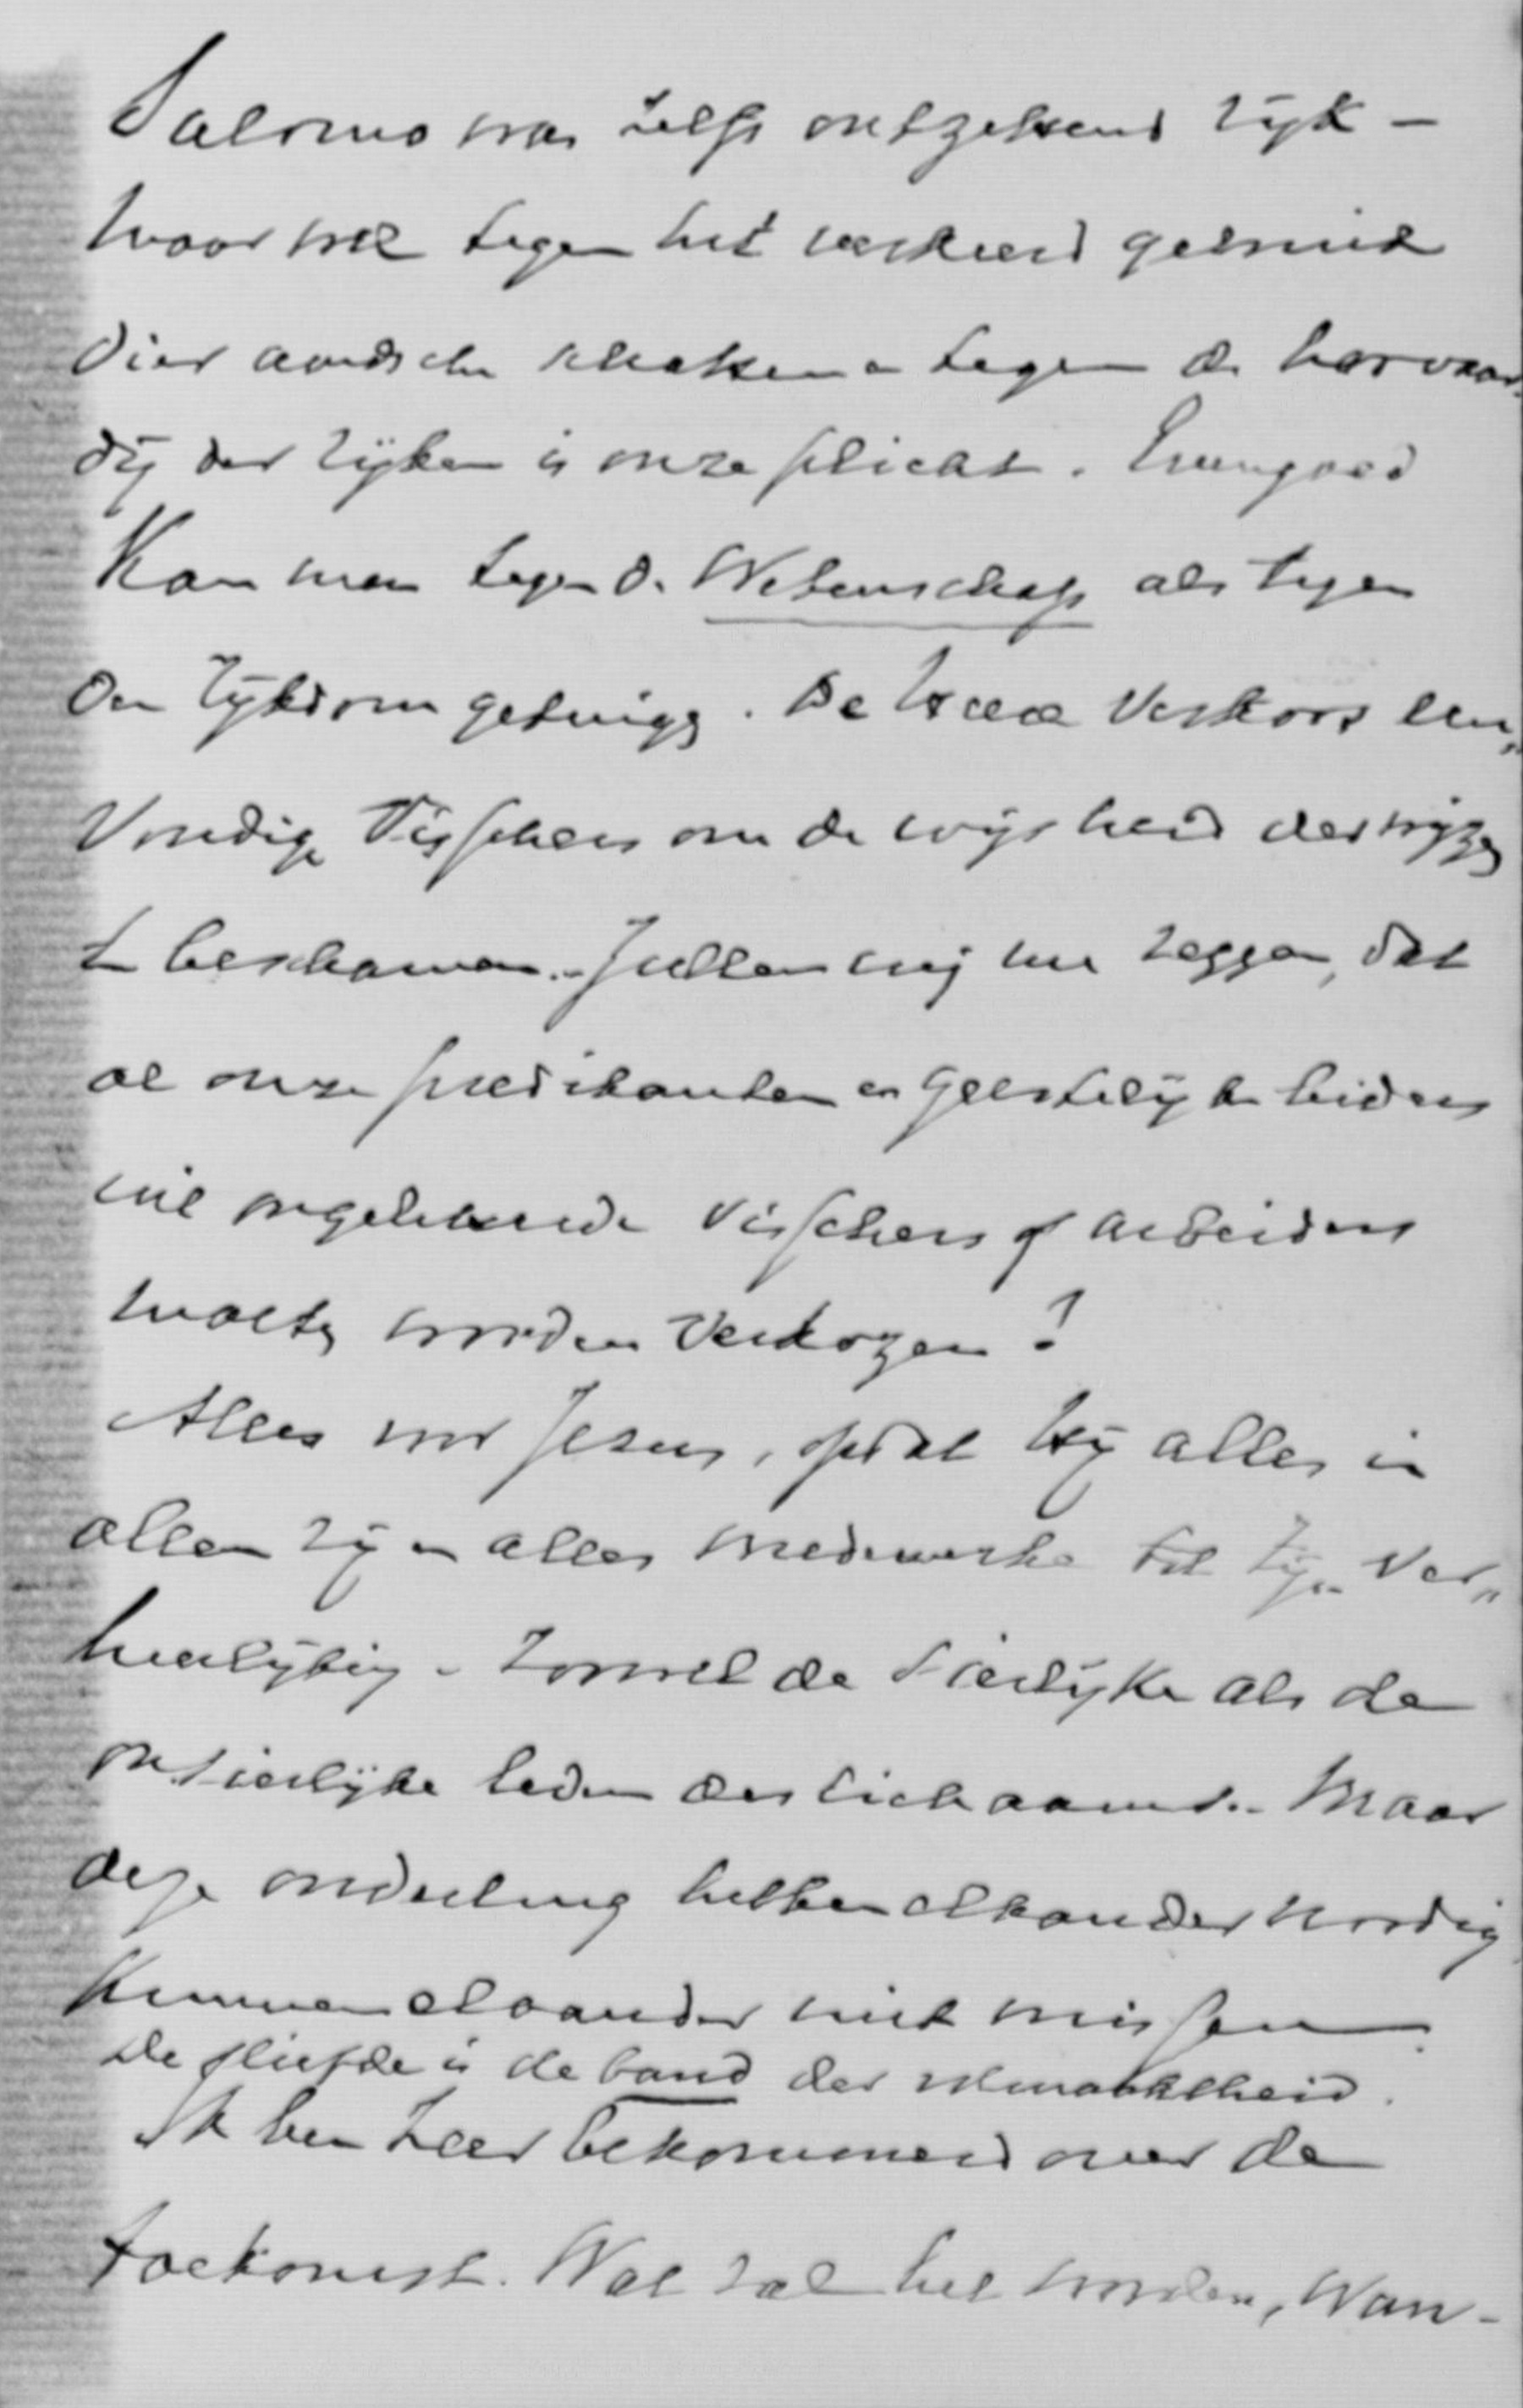 Salomo was zelfs ontzettend rijk –
maar wel tegen het verkeerd gebruik
dier aardsche schatten en tegen de hoovaar„
dij der rijken is onze plicht. Evengoed
kan men tegen de Wetenschap als tegen
den rijkdom getuigen. De Heere verkoos een„
voudige visschers om de wijsheid der wijzen
te beschamen. Zullen wij nu zeggen, dat
al onze predikanten en geestelijke leiders
uit ongeletterde visschers of arbeiders
moeten worden verkozen?
Alles voor Jezus, opdat Hij alles in
allen zij en alles medewerke tot Zijn ver„
heerlijking. Zoowel de sierlijke als de
onsierlijke leden des lichaams. Maar
deze onderling hebben elkander noodig
kunnen elkander niet missen.
De liefde is de band der volmaaktheid.
Ik ben zeer bekommerd over de
toekomst. Wat zal het worden, wan-